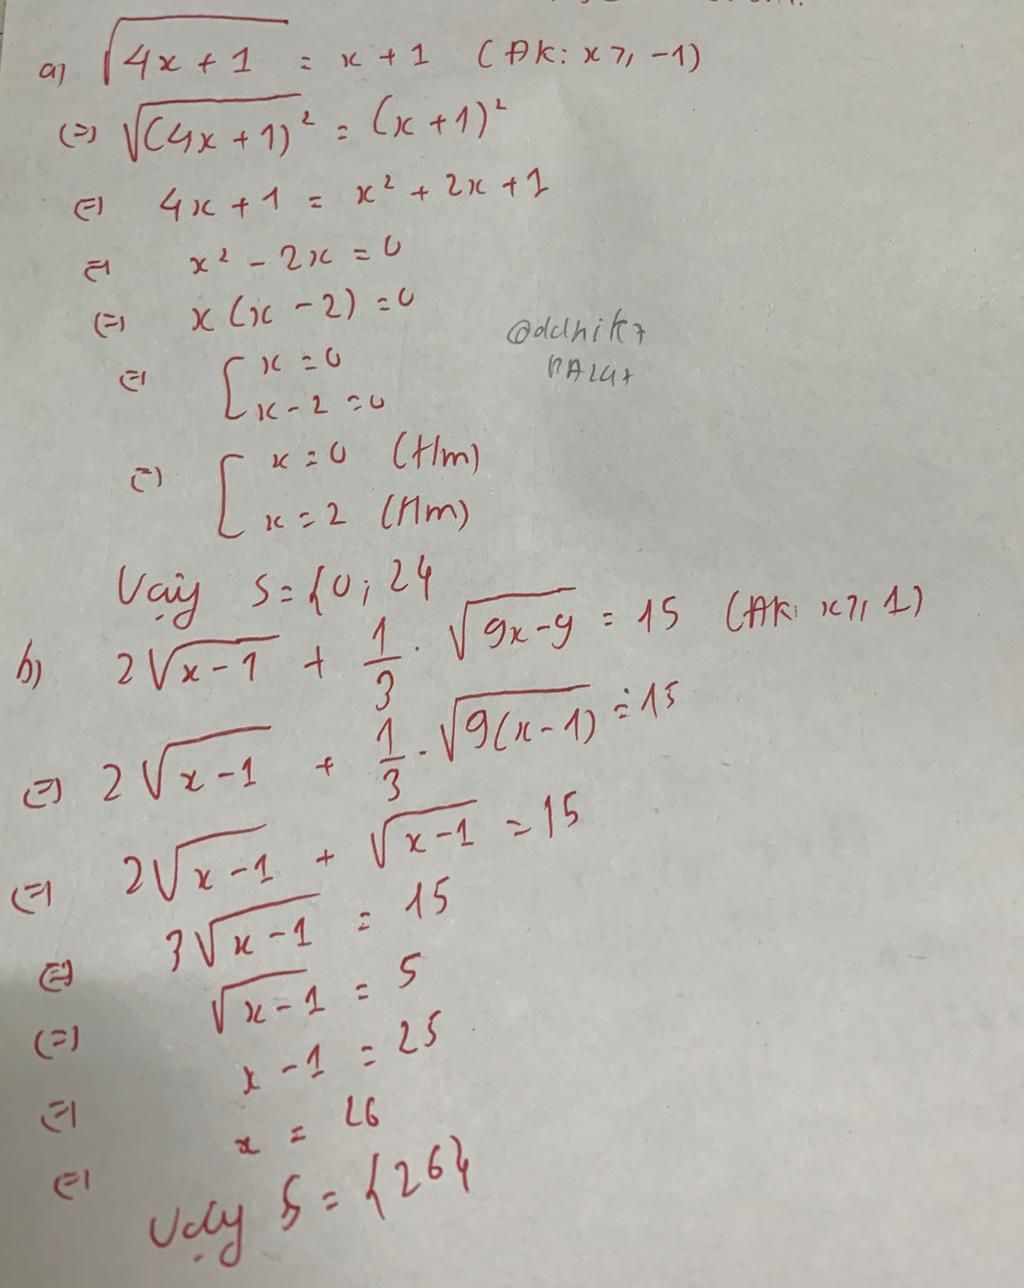 a) √(4x + 1) = x + 1 (ĐK: x ≥ -1)
(=) √(4x + 1)² = (x + 1)²
(=) 4x + 1 = x² + 2x + 1
(=) x² - 2x = 0
(=) x (x - 2) = 0
(=) [ x = 0
x - 2 = 0
(=) [ x = 0 (t/m)
x = 2 (t/m)
Vậy S = {0; 2}
b) 2√(x - 1) + 1/3 . √(9x - 9) = 15 (ĐK: x ≥ 1)
(=) 2√(x - 1) + 1/3 . √(9(x - 1)) = 15
(=) 2√(x - 1) + √(x - 1) = 15
(=) 3√(x - 1) = 15
(=) √(x - 1) = 5
(=) x - 1 = 25
(=) x = 26
(=) Vậy S = {26}